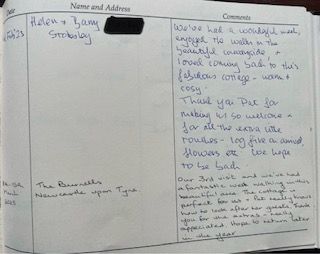 Date
Name and Address
Comments
Feb '23 Helen & Barry
We've had a wonderful week,
enjoyed the walks in the
beautiful countryside &
loved coming back to this
fabulous cottage - warm &
cosy.
Thank you Pat for
making us so welcome &
for all the extra little
touches - log fire on arrival,
flowers etc. We hope
to be back.
The Burnells
Newcastle upon Tyne.
Our 3rd visit and we've had
a fantastic week walking in this
beautiful area. The cottage is
perfect for us & Pat really knows
how to look after her guests. Thank
you for the extras - really
appreciated. Hope to return later
in the year